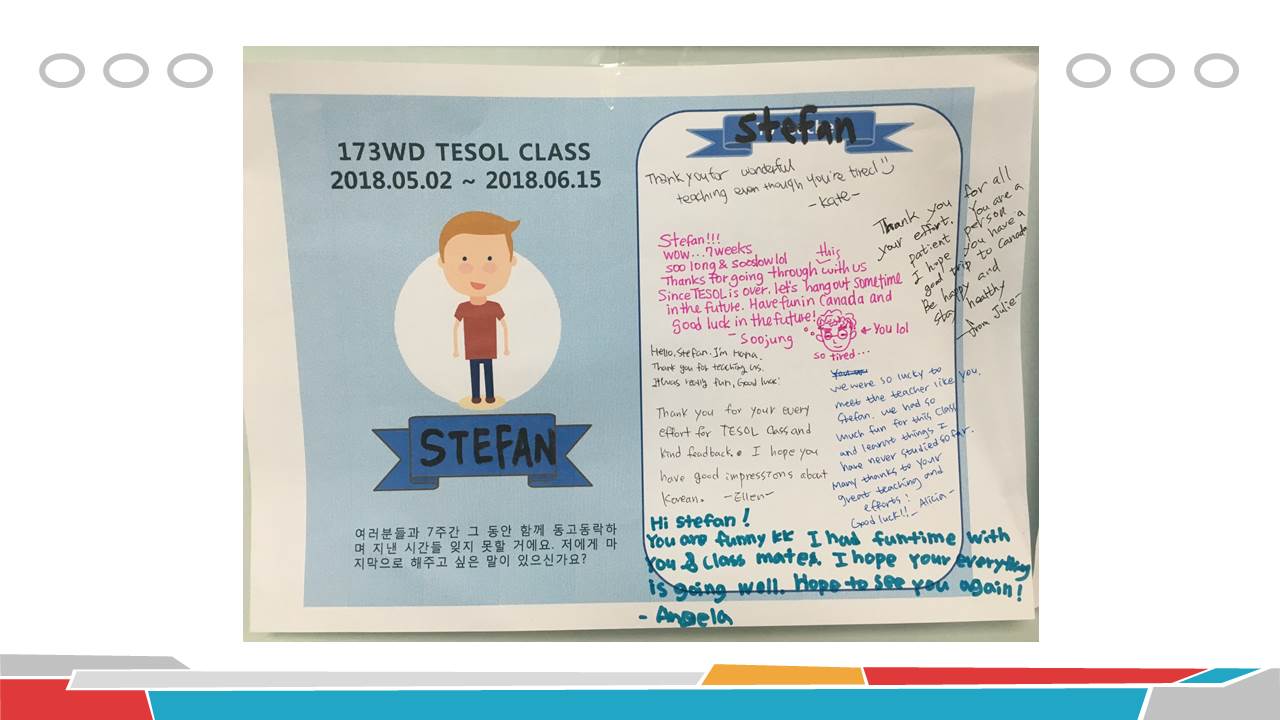 173WD TESOL CLASS
2018.05.02 ~ 2018.06.15
STEFAN
여러분들과 7주간 그 동안 함께 동고동락하
며 지낸 시간들 잊지 못할 거에요. 저에게 마
지막으로 해주고 싶은 말이 있으신가요?
stefan
Thank you for wonderful
teaching even though you're tired!
-Kate-
Thank you for all
your effort. You are a
patient person
I hope you have a
good trip to Canada
Be happy and
stay healthy
-from Julie-
Stefan!!!
wow...7weeks
soo long & sooslow lol
this
Thanks for going through with us
Since TESOL is over, let's hang out sometime
in the future. Have fun in Canada and
good luck in the future!
- Soojung
← You lol
so tired...
Hello, Stefan. I'm Hana.
Thank you for teaching us.
It was really fun, Good luck!
Thank you for your every
effort for TESOL Class and
kind feadback. I hope you
have good impressions about
Korean. -Ellen-
we were so lucky to
meet the teacher like you,
Stefan. we had so
much fun for this class
and learnt things I
have never studied so far.
Many thanks to your
great teaching and
efforts!
Good luck!! - Alicia -
Hi stefan!
You are funny kk I had fun time with
you & class mates. I hope your everything
is going well. Hope to see you again!
- Angela